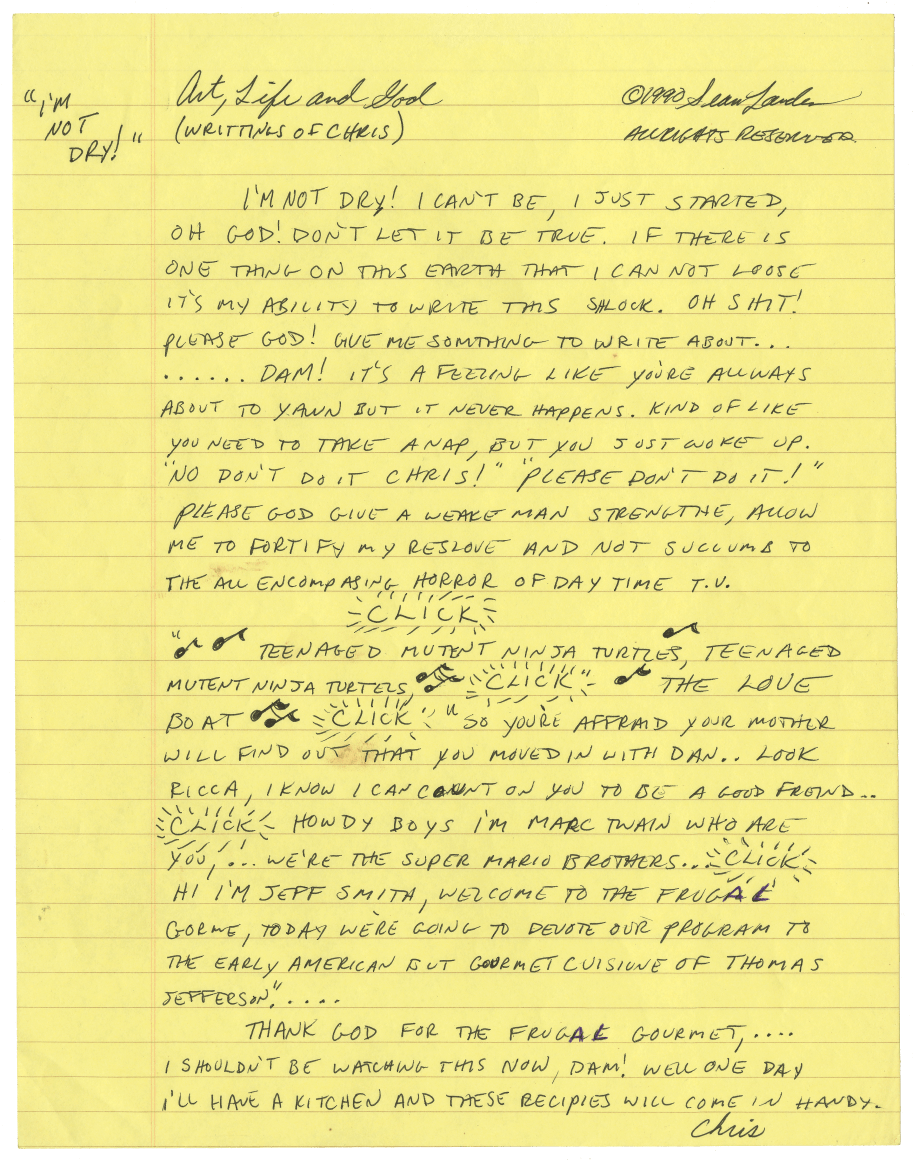 "I'M
NOT
DRY!"
Art, Life and God
©1990 Sean Landers
(WRITTINGS OF CHRIS)
ALL RIGHTS RESERVED
I'M NOT DRY! I CAN'T BE, I JUST STARTED,
OH GOD! DON'T LET IT BE TRUE. IF THERE IS
ONE THING ON THIS EARTH THAT I CAN NOT LOOSE
IT'S MY ABILITY TO WRITE THIS SHLOCK. OH SHIT!
PLEASE GOD! GIVE ME SOMTHING TO WRITE ABOUT...
...... DAM! IT'S A FEELING LIKE YOU'RE ALLWAYS
ABOUT TO YAWN BUT IT NEVER HAPPENS. KIND OF LIKE
YOU NEED TO TAKE A NAP, BUT YOU JUST WOKE UP.
"NO DON'T DO IT CHRIS!" "PLEASE DON'T DO IT!"
PLEASE GOD GIVE A WEAKE MAN STRENGTHE, ALLOW
ME TO FORTIFY MY RESLOVE AND NOT SUCCUMB TO
THE ALL ENCOMPASING HORROR OF DAY TIME T.V.
CLICK
"♪ ♪ TEENAGED MUTENT NINJA TURTLES, ♪ TEENAGED
MUTENT NINJA TURTELS, ♫ CLICK" ♪ THE LOVE
BOAT ♫ CLICK "SO YOU'RE AFFRAID YOUR MOTHER
WILL FIND OUT THAT YOU MOVED IN WITH DAN.. LOOK
RICCA, I KNOW I CAN COUNT ON YOU TO BE A GOOD FREIND..
CLICK HOWDY BOYS I'M MARC TWAIN WHO ARE
YOU,... WE'RE THE SUPER MARIO BROTHERS... CLICK
HI I'M JEFF SMITH, WELCOME TO THE FRUGAL
GORME, TODAY WE'RE GOING TO DEVOTE OUR PROGRAM TO
THE EARLY AMERICAN BUT GOURMET CUISIUNE OF THOMAS
JEFFERSON."....
THANK GOD FOR THE FRUGAL GOURMET,....
I SHOULDN'T BE WATCHING THIS NOW, DAM! WELL ONE DAY
I'LL HAVE A KITCHEN AND THESE RECIPIES WILL COME IN HANDY.
Chris